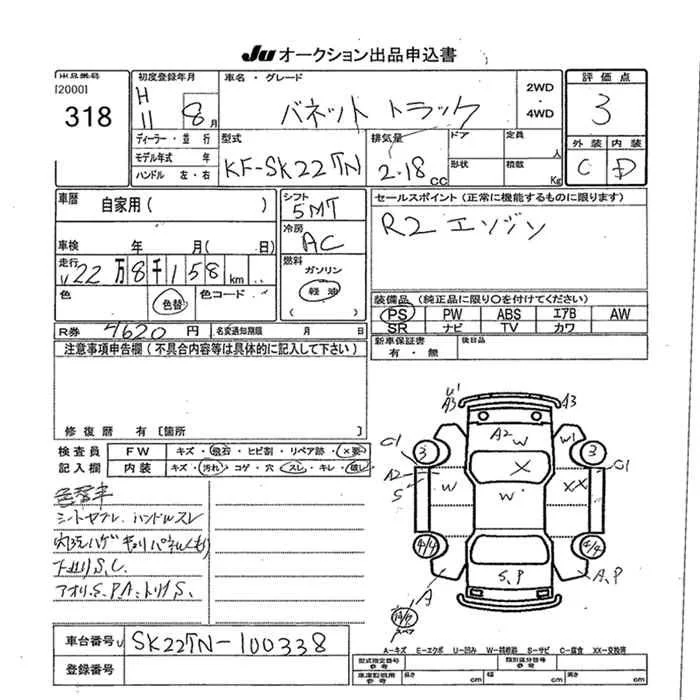 Ju オークション出品申込書
出品番号
[2000]
318
初度登録年月
H
11 8 月
車名・グレード
バネット トラック
2WD
・
4WD
評価点
3
ディーラー・並行
モデル年式 年
ハンドル 左・右
型式
KF-SK22TN
排気量
2.18 CC
ドア
・
形状
定員
人
積載
Kg
外装 内装
C D
車歴
自家用( )
シフト
5MT
車検 年 月( 日)
冷房
AC
走行
√22万8千158km
燃料
ガソリン
・
軽油
( )
色
色替
色コード
R券 7620 円
名変通知期限 月 日
セールスポイント (正常に機能するものに限ります)
R2 エンジン
装備品 (純正品に限り○を付けてください)
PS PW ABS エアB AW
SR ナビ TV カワ
新車保証書
有・無
後日品
注意事項申告欄 (不具合内容等は具体的に記入して下さい)
修復歴 有 [箇所 ]
検査員
記入欄
FW キズ・飛石・ヒビ割・リペア跡・×要
内装 キズ・汚れ・コゲ・穴・スレ・キレ・破し
色替車
シートヤブレ、ハンドルスレ
下廻りS、C
アオリ、S、P、A、トリイS、
車台番号 √ SK22TN-100338
登録番号
U'
A3
A3
C1
3
A2
W
W1
3
C1
A2
S
W
X
W
XX
4/4
4/4
S、P
A
A、P
スペア
A-キズ E-エクボ U-凹み W-補修跡 S-サビ C-腐食 XX-交換等
型式指定番号
参考
類別区分番号
参考
車庫証明用
参考
長さ cm 幅 cm 高さ cm